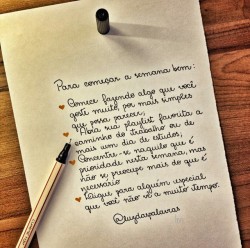 Para começar a semana bem:
Comece fazendo algo que você
goste muito, por mais simples
que possa parecer;
Abra sua playlist favorita a
caminho do trabalho ou de
mais um dia de estudos;
Concentre-se naquilo que é
prioridade nesta semana, mas
não se preocupe mais do que é
necessário
Ligue para alguém especial
que você não vê a muito tempo.
@luzdaspalavras